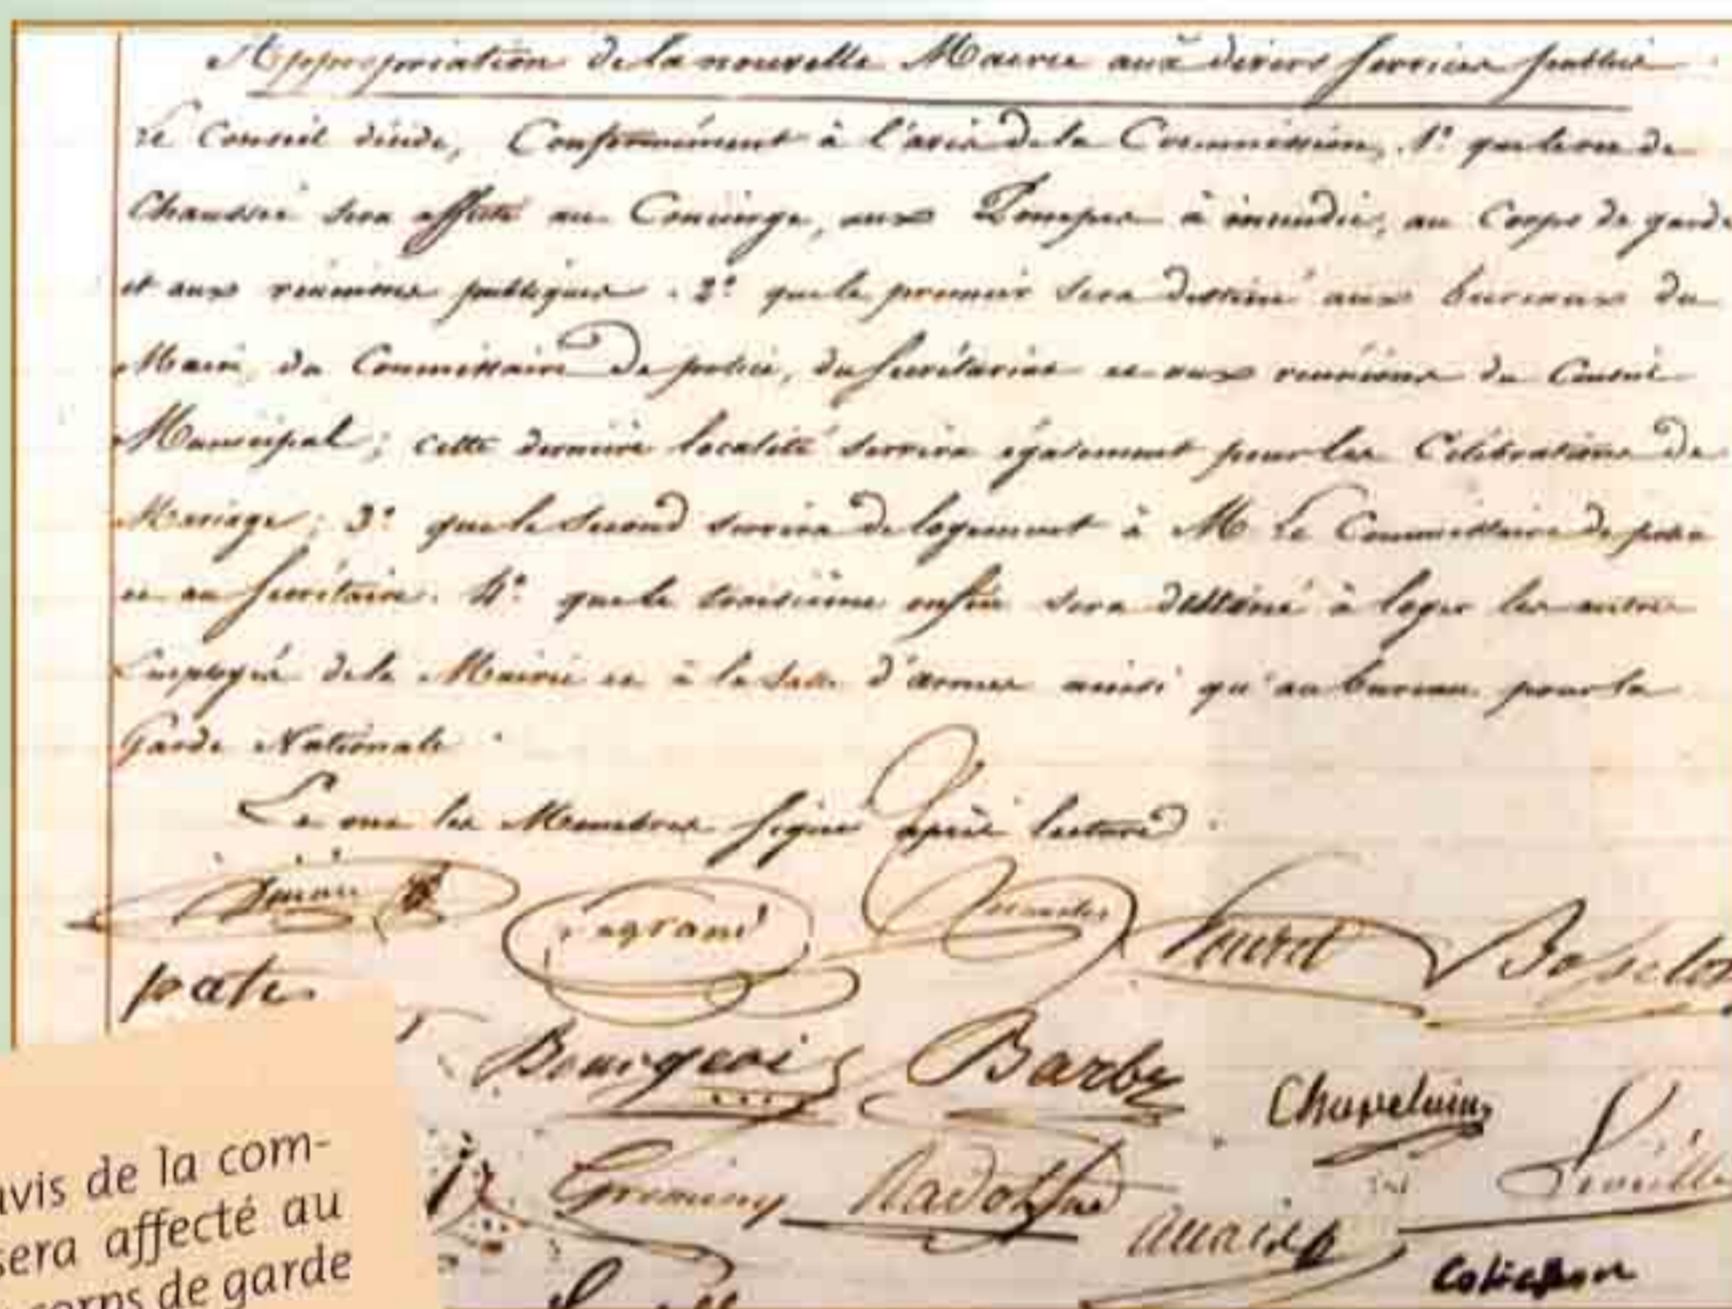 Appropriation de la nouvelle Mairie aux divers services publics
Le Conseil décide, Conformément à l'avis de la Commission, 1° que le rez de
Chaussée sera affecté au Concierge, aux Pompes à incendie, au Corps de garde
et aux réunions publiques. 2° que le premier sera destiné aux bureaux du
Maire, du Commissaire de police, du secrétariat et aux réunions du Conseil
Municipal ; cette dernière localité servira également pour les Célébrations de
Mariage ; 3° que le second servira de logement à M. Le Commissaire de police
et au secrétaire. 4° que le troisième enfin sera destiné à loger les autres
Employés de la Mairie et à la salle d'armes ainsi qu'au bureau pour la
Garde Nationale.
Et ont les Membres signé après lecture
Legrand
pate
Bourgeois Barby
Chapelain
Radot
Colichon
avis de la com-
sera affecté au
corps de garde